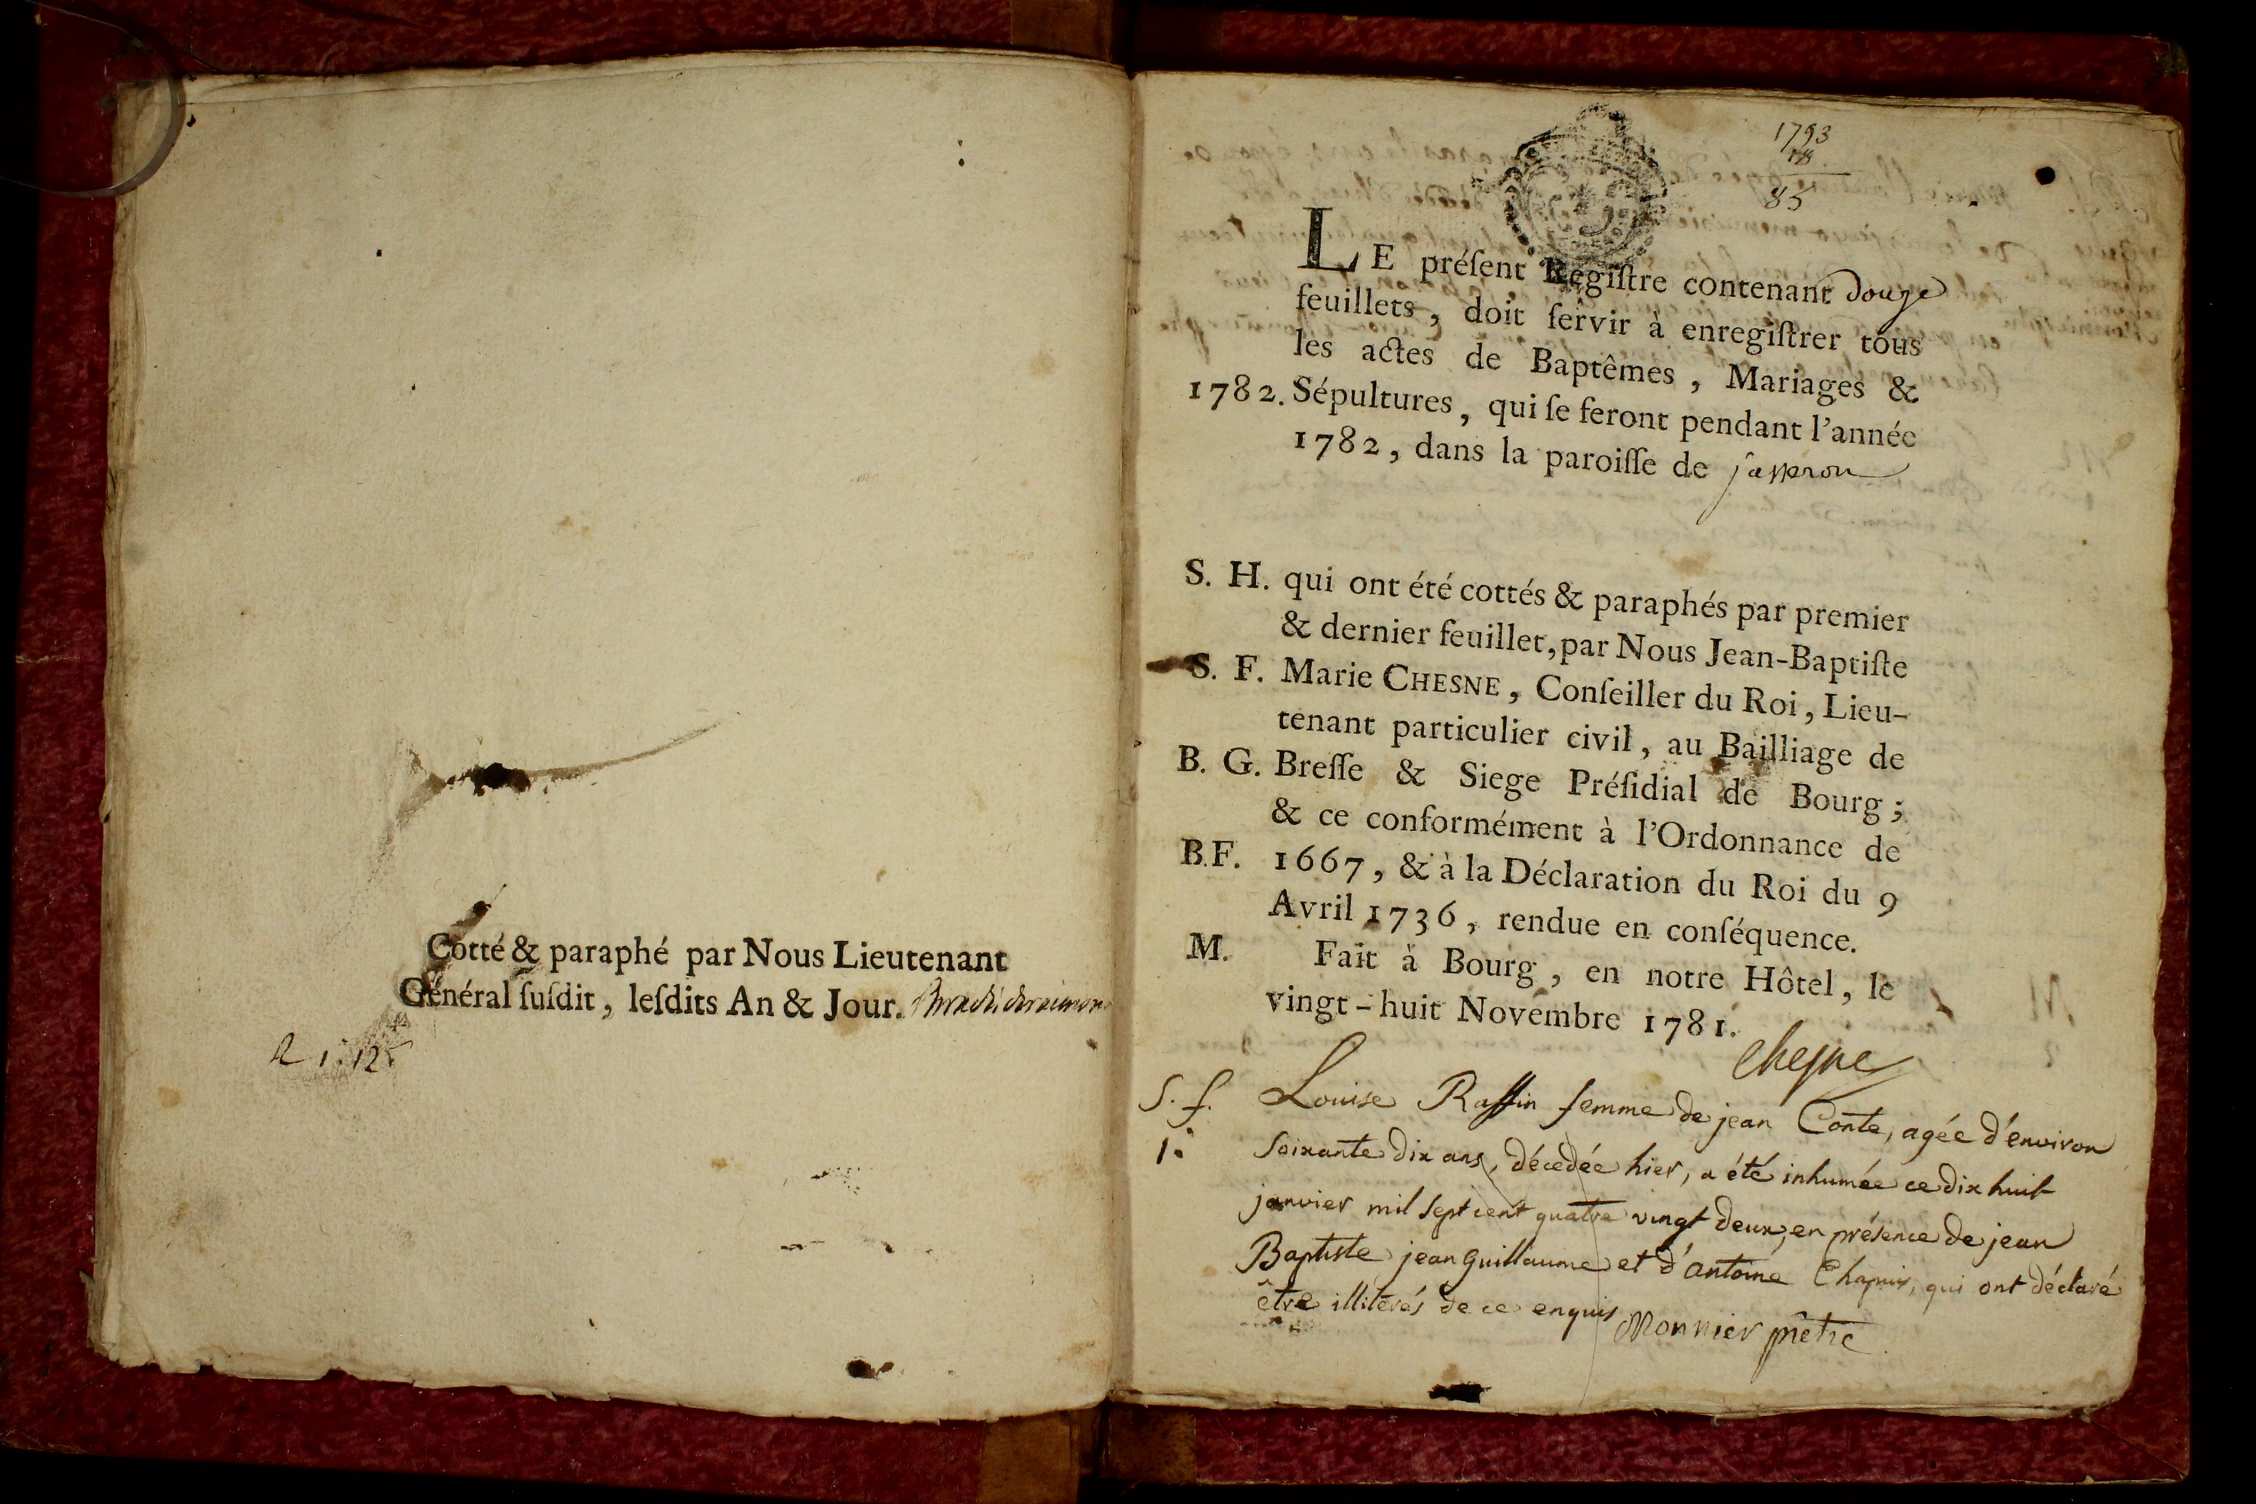 Cotté & paraphé par Nous Lieutenant
Général ſuſdit, leſdits An & Jour.
1793
85
LE préſent Regiſtre contenant douze
feuillets, doit ſervir à enregiſtrer tous
les actes de Baptêmes, Mariages &
1782. Sépultures, qui ſe feront pendant l'année
1782, dans la paroiſſe de jasseron
S. H. qui ont été cottés & paraphés par premier
& dernier feuillet, par Nous Jean-Baptiſte
S. F. Marie CHESNE, Conſeiller du Roi, Lieu-
tenant particulier civil, au Bailliage de
B. G. Breſſe & Siege Préſidial de Bourg;
& ce conformément à l'Ordonnance de
B. F. 1667, & à la Déclaration du Roi du 9
Avril 1736, rendue en conſéquence.
M. Fait à Bourg, en notre Hôtel, le
vingt-huit Novembre 1781.
Chesne
S. f. Louise Raffin femme de jean Conte, agée d'environ
1. Soixante dix ans, décedée hier, a été inhumée ce dix huit
janvier mil sept cent quatre vingt deux, en présence de jean
Baptiste jean guillaume et d'antoine Chapuis, qui ont déclaré
être illiterés de ce enquis
Monnier prêtre